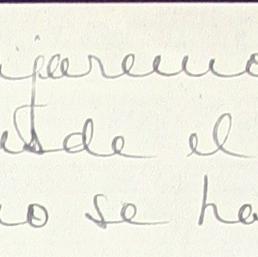 jaremo
sde el
no se ha